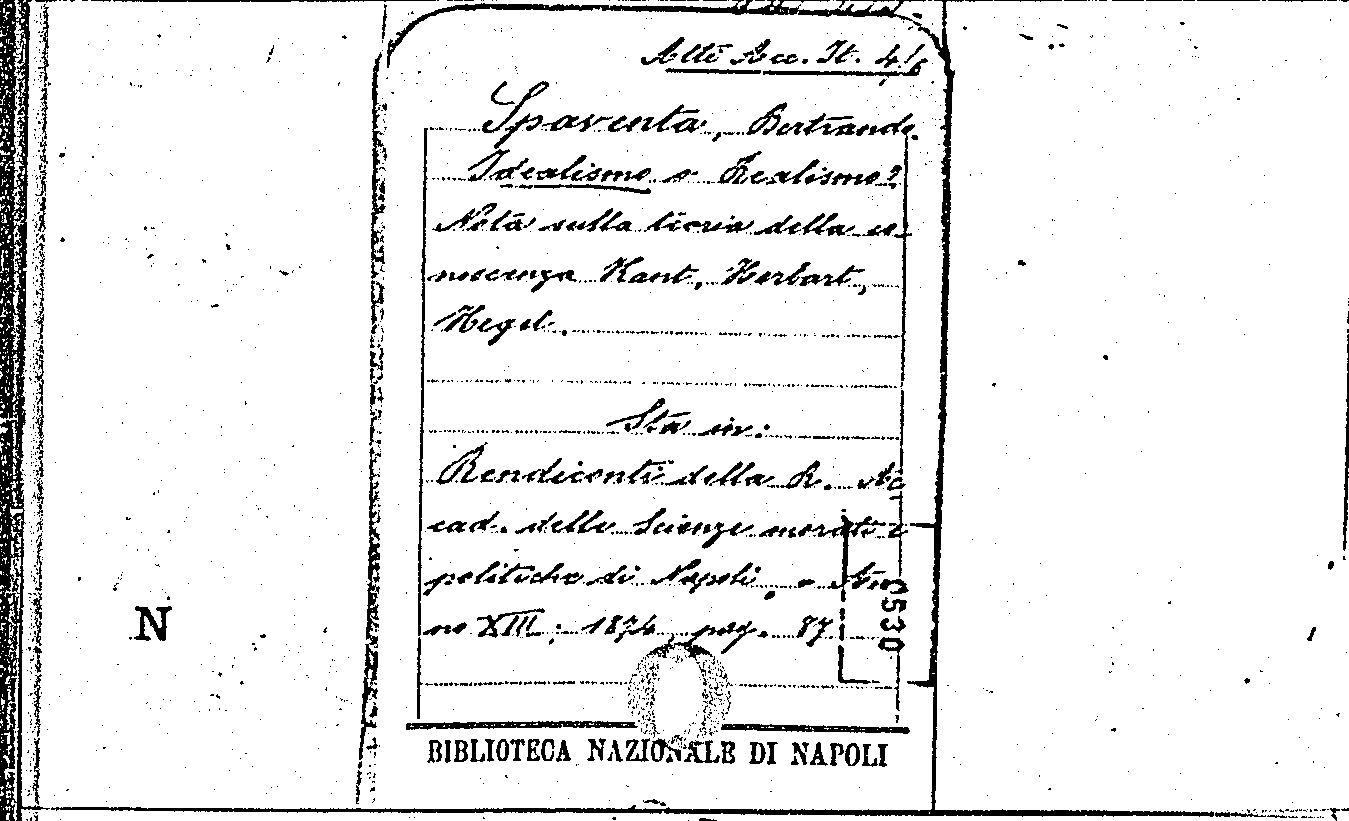 Atti Acc. It. 4/6
Spaventa, Bertrando.
Idealismo o Realismo?
Nota sulla teoria della co-
noscenza Kant, Herbart,
Hegel.
Sta in:
Rendiconti della R. Ac
cad. delle Scienze morali e
politiche di Napoli, An
no XIII; 1874, pag. 87
0530
N
BIBLIOTECA NAZIONALE DI NAPOLI